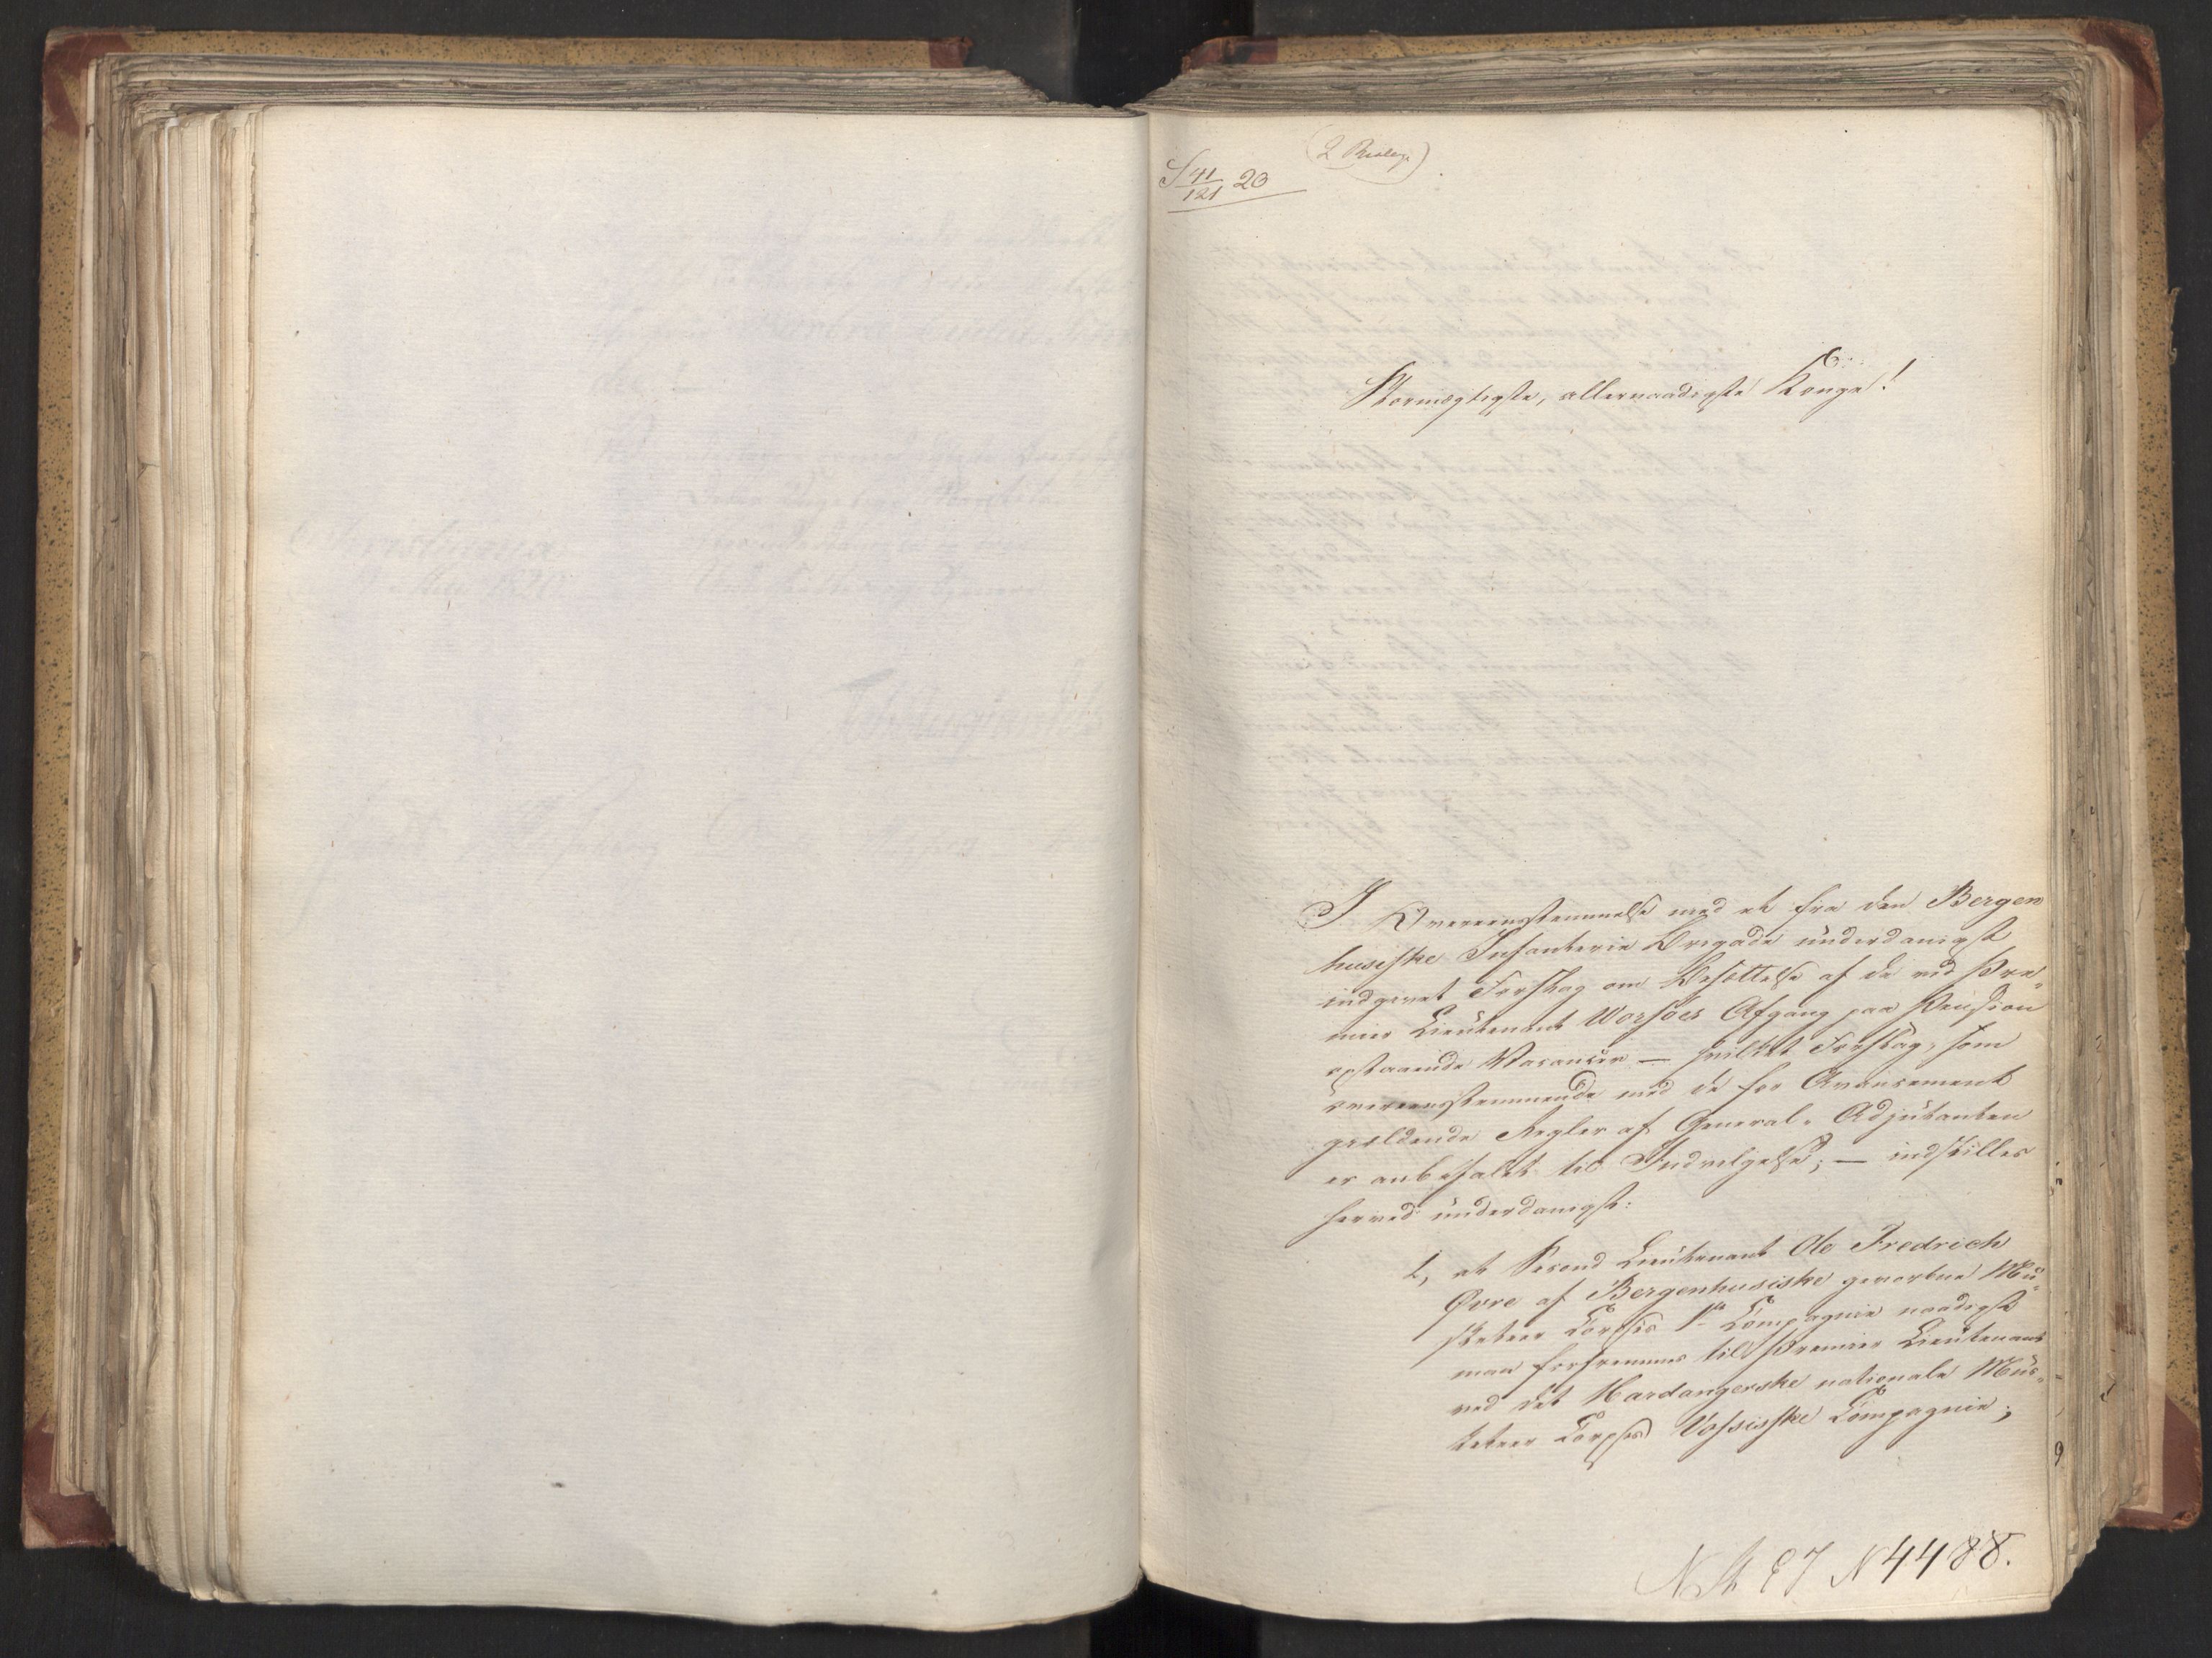 (2 Bielage)
S 41/121 20
Stormægtigste, allernaadigste Konge!
I Overeensstemmelse med et fra den Bergen
husiske Infanterie Brigade underdanigst
indgivet Forslag om Besættelse af de ved Pre„
mier Lieutenant Worsöes Afgang paa Pension
opstaaende Vacancer — hvilket Forslag, som
overeensstemmende med de for Avancement
gieldende Regler af General-Adjutanten
er anbefalet til Indvilgelse; — indstilles
herved underdanigst:
1, at Second Lieutenant Ole Fredrich
Øvre af Bergenhusiske gevorbne Mu„
sketeer Corpses 1ste Compagnie naadigst
maa forfremmes til Premier Lieutenant
ved det Hardangerske nationale Mus„
keteer Corpses Vossiske Compagnie;
N 4488.